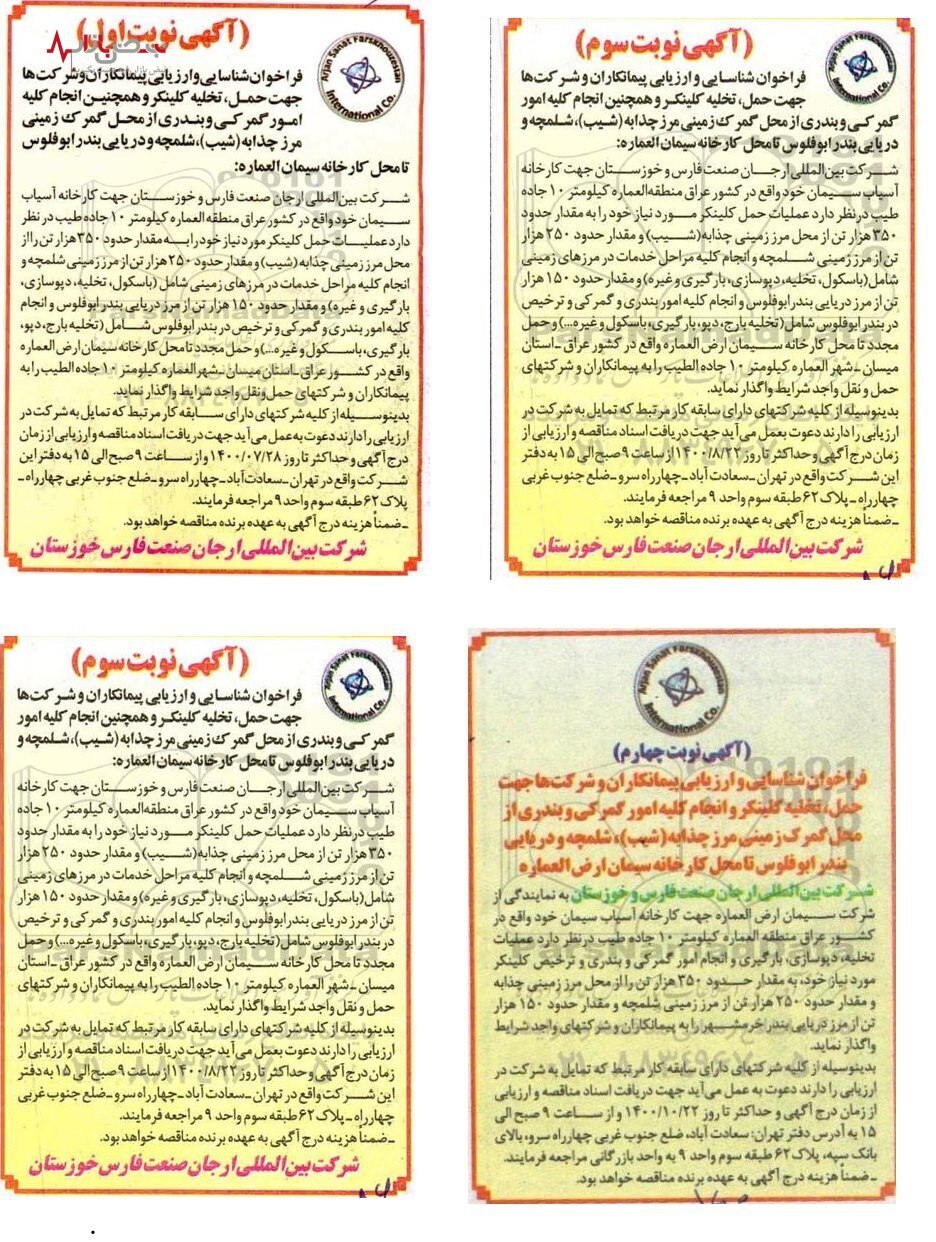 (آگهی نوبت اول)
Arjan Sanat Farskhouzestan
International Co.
فراخوان شناسایی و ارزیابی پیمانکاران و شرکت‌ها
جهت حمل، تخلیه کلینکر و همچنین انجام کلیه
امور گمرکی و بندری از محل گمرک زمینی
مرز چذابه (شیب)، شلمچه و دریایی بندر ابوفلوس
تا محل کارخانه سیمان العماره:
شرکت بین‌المللی ارجان صنعت فارس و خوزستان جهت کارخانه آسیاب
سیمان خود واقع در کشور عراق منطقه العماره کیلومتر ۱۰ جاده طیب در نظر
دارد عملیات حمل کلینکر مورد نیاز خود را به مقدار حدود ۳۵۰ هزار تن را از
محل مرز زمینی چذابه (شیب) و مقدار حدود ۲۵۰ هزار تن از مرز زمینی شلمچه و
انجام کلیه مراحل خدمات در مرزهای زمینی شامل (باسکول، تخلیه، دپوسازی،
بارگیری و غیره) و مقدار حدود ۱۵۰ هزار تن از مرز دریایی بندر ابوفلوس و انجام
کلیه امور بندری و گمرکی و ترخیص در بندر ابوفلوس شامل (تخلیه بارج، دپو،
بارگیری، باسکول و غیره...) و حمل مجدد تا محل کارخانه سیمان ارض العماره
واقع در کشور عراق - استان میسان - شهر العماره کیلومتر ۱۰ جاده الطیب را به
پیمانکاران و شرکتهای حمل و نقل واجد شرایط واگذار نماید.
بدینوسیله از کلیه شرکتهای دارای سابقه کار مرتبط که تمایل به شرکت در
ارزیابی را دارند دعوت به عمل می آید جهت دریافت اسناد مناقصه و ارزیابی از زمان
درج آگهی و حداکثر تا روز ۱۴۰۰/۰۷/۲۸ و از ساعت ۹ صبح الی ۱۵ به دفتر این
شرکت واقع در تهران - سعادت آباد - چهارراه سرو - ضلع جنوب غربی چهارراه -
پلاک ۶۲ طبقه سوم واحد ۹ مراجعه فرمایند.
- ضمناً هزینه درج آگهی به عهده برنده مناقصه خواهد بود.
شرکت بین المللی ارجان صنعت فارس خوزستان
(آگهی نوبت سوم)
Arjan Sanat Farskhouzestan
International Co.
فراخوان شناسایی و ارزیابی پیمانکاران و شرکت‌ها
جهت حمل، تخلیه کلینکر و همچنین انجام کلیه امور
گمرکی و بندری از محل گمرک زمینی مرز چذابه (شیب)، شلمچه و
دریایی بندر ابوفلوس تا محل کارخانه سیمان العماره:
شرکت بین‌المللی ارجان صنعت فارس و خوزستان جهت کارخانه
آسیاب سیمان خود واقع در کشور عراق منطقه العماره کیلومتر ۱۰ جاده
طیب در نظر دارد عملیات حمل کلینکر مورد نیاز خود را به مقدار حدود
۳۵۰ هزار تن از محل مرز زمینی چذابه (شیب) و مقدار حدود ۲۵۰ هزار
تن از مرز زمینی شلمچه و انجام کلیه مراحل خدمات در مرزهای زمینی
شامل (باسکول، تخلیه، دپوسازی، بارگیری و غیره) و مقدار حدود ۱۵۰ هزار
تن از مرز دریایی بندر ابوفلوس و انجام کلیه امور بندری و گمرکی و ترخیص
در بندر ابوفلوس شامل (تخلیه بارج، دپو، بارگیری، باسکول و غیره...) و حمل
مجدد تا محل کارخانه سیمان ارض العماره واقع در کشور عراق - استان
میسان - شهر العماره کیلومتر ۱۰ جاده الطیب را به پیمانکاران و شرکتهای
حمل و نقل واجد شرایط واگذار نماید.
بدینوسیله از کلیه شرکتهای دارای سابقه کار مرتبط که تمایل به شرکت در
ارزیابی را دارند دعوت بعمل می آید جهت دریافت اسناد مناقصه و ارزیابی از
زمان درج آگهی و حداکثر تا روز ۱۴۰۰/۸/۲۲ از ساعت ۹ صبح الی ۱۵ به دفتر
این شرکت واقع در تهران - سعادت آباد - چهارراه سرو - ضلع جنوب غربی
چهارراه - پلاک ۶۲ طبقه سوم واحد ۹ مراجعه فرمایند.
- ضمناً هزینه درج آگهی به عهده برنده مناقصه خواهد بود.
شرکت بین المللی ارجان صنعت فارس خوزستان
(آگهی نوبت سوم)
Arjan Sanat Farskhouzestan
International Co.
فراخوان شناسایی و ارزیابی پیمانکاران و شرکت‌ها
جهت حمل، تخلیه کلینکر و همچنین انجام کلیه امور
گمرکی و بندری از محل گمرک زمینی مرز چذابه (شیب)، شلمچه و
دریایی بندر ابوفلوس تا محل کارخانه سیمان العماره:
شرکت بین‌المللی ارجان صنعت فارس و خوزستان جهت کارخانه
آسیاب سیمان خود واقع در کشور عراق منطقه العماره کیلومتر ۱۰ جاده
طیب در نظر دارد عملیات حمل کلینکر مورد نیاز خود را به مقدار حدود
۳۵۰ هزار تن از محل مرز زمینی چذابه (شیب) و مقدار حدود ۲۵۰ هزار
تن از مرز زمینی شلمچه و انجام کلیه مراحل خدمات در مرزهای زمینی
شامل (باسکول، تخلیه، دپوسازی، بارگیری و غیره) و مقدار حدود ۱۵۰ هزار
تن از مرز دریایی بندر ابوفلوس و انجام کلیه امور بندری و گمرکی و ترخیص
در بندر ابوفلوس شامل (تخلیه بارج، دپو، بارگیری، باسکول و غیره...) و حمل
مجدد تا محل کارخانه سیمان ارض العماره واقع در کشور عراق - استان
میسان - شهر العماره کیلومتر ۱۰ جاده الطیب را به پیمانکاران و شرکتهای
حمل و نقل واجد شرایط واگذار نماید.
بدینوسیله از کلیه شرکتهای دارای سابقه کار مرتبط که تمایل به شرکت در
ارزیابی را دارند دعوت بعمل می آید جهت دریافت اسناد مناقصه و ارزیابی از
زمان درج آگهی و حداکثر تا روز ۱۴۰۰/۸/۲۲ از ساعت ۹ صبح الی ۱۵ به دفتر
این شرکت واقع در تهران - سعادت آباد - چهارراه سرو - ضلع جنوب غربی
چهارراه - پلاک ۶۲ طبقه سوم واحد ۹ مراجعه فرمایند.
- ضمناً هزینه درج آگهی به عهده برنده مناقصه خواهد بود.
شرکت بین المللی ارجان صنعت فارس خوزستان
Arjan Sanat Farskhouzestan
International Co.
(آگهی نوبت چهارم)
فراخوان شناسایی و ارزیابی پیمانکاران و شرکت‌ها جهت
حمل، تخلیه کلینکر و انجام کلیه امور گمرکی و بندری از
محل گمرک زمینی مرز چذابه (شیب)، شلمچه و دریایی
بندر ابوفلوس تا محل کارخانه سیمان ارض العماره
شرکت بین المللی ارجان صنعت فارس و خوزستان به نمایندگی از
شرکت سیمان ارض العماره جهت کارخانه آسیاب سیمان خود واقع در
کشور عراق منطقه العماره کیلومتر ۱۰ جاده طیب در نظر دارد عملیات
تخلیه، دپوسازی، بارگیری و انجام امور گمرکی و بندری و ترخیص کلینکر
مورد نیاز خود، به مقدار حدود ۳۵۰ هزار تن را از محل مرز زمینی چذابه
و مقدار حدود ۲۵۰ هزار تن از مرز زمینی شلمچه و مقدار حدود ۱۵۰ هزار
تن از مرز دریایی بندر خرمشهر را به پیمانکاران و شرکتهای واجد شرایط
واگذار نماید.
بدینوسیله از کلیه شرکتهای دارای سابقه کار مرتبط که تمایل به شرکت در
ارزیابی را دارند دعوت به عمل می آید جهت دریافت اسناد مناقصه و ارزیابی
از زمان درج آگهی و حداکثر تا روز ۱۴۰۰/۱۰/۲۲ و از ساعت ۹ صبح الی
۱۵ به آدرس دفتر تهران: سعادت آباد، ضلع جنوب غربی چهارراه سرو، بالای
بانک سپه، پلاک ۶۲ طبقه سوم واحد ۹ به واحد بازرگانی مراجعه فرمایند.
- ضمناً هزینه درج آگهی به عهده برنده مناقصه خواهد بود.